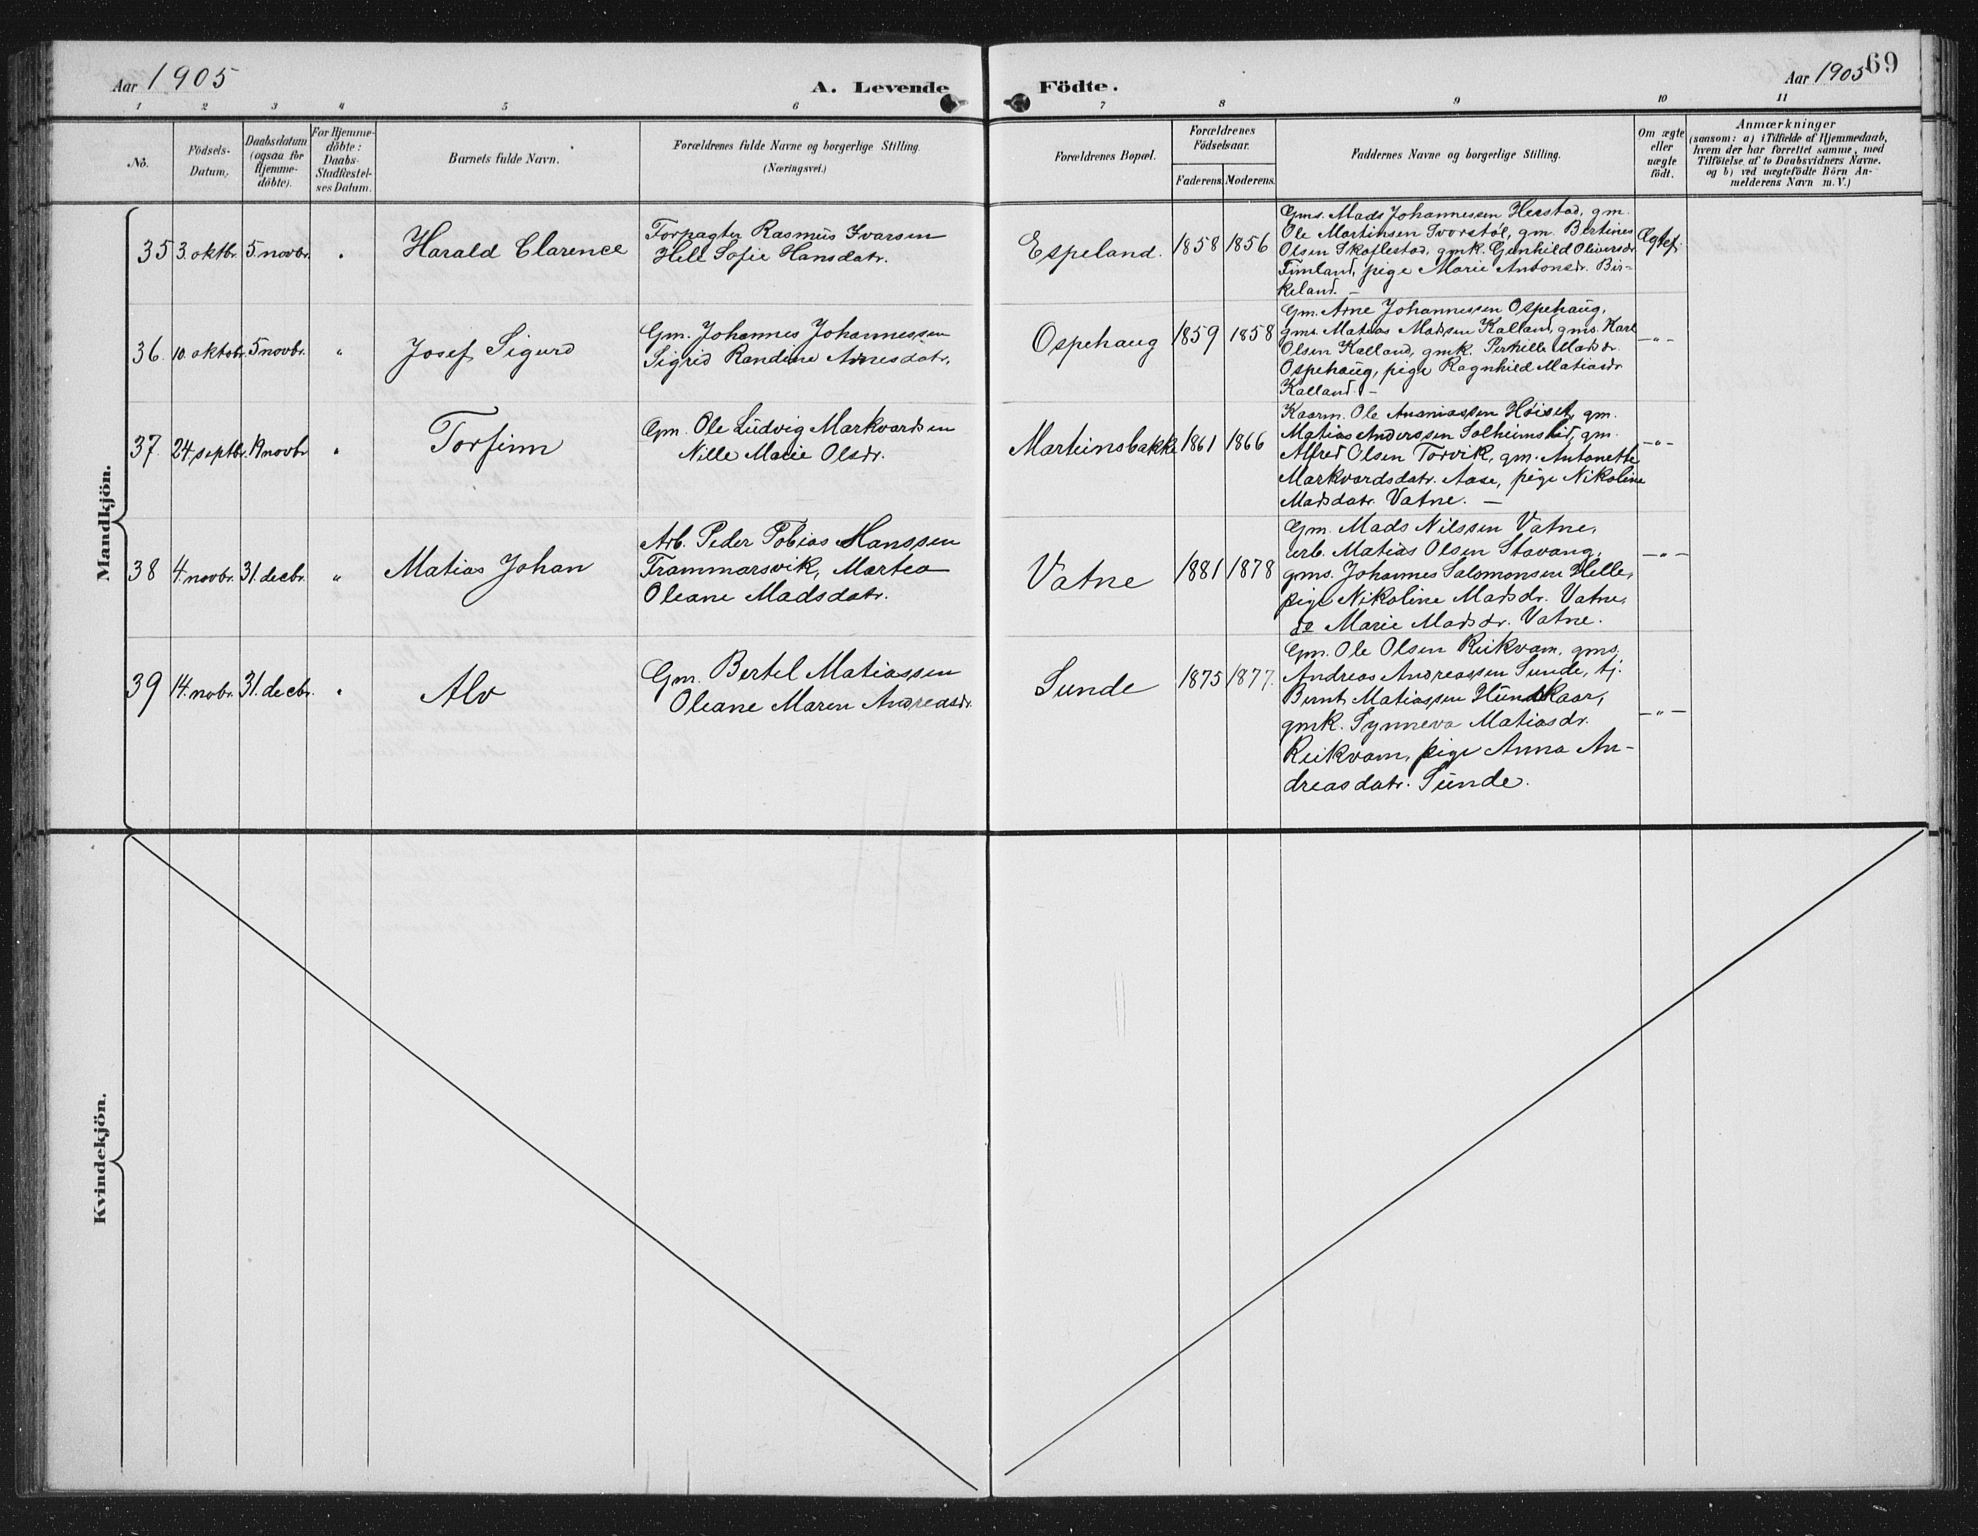 Aar 1905
A. Levende
Födte.
Aar 1905
69
1 2 3 4 5 6 7 8 9 10 11
No.
Födsels-
Datum.
Daabsdatum
(ogsaa for
Hjemme-
döbte).
For Hjemme-
döbte:
Daabs-
Stadfæstel-
ses Datum.
Barnets fulde Navn.
Forældrenes fulde Navne og borgerlige Stilling.
(Næringsvei.)
Forældrenes Bopæl.
Forældrenes
Födselsaar.
Faderens. Moderens.
Faddernes Navne og borgerlige Stilling.
Om ægte
eller
uægte
födt.
Anmærkninger
(saasom: a) i Tilfælde af Hjemmedaab,
hvem der har forrettet samme, med
Tilföielse af to Daabsvidners Navne.
og b) ved uægtefödte Börn An-
melderens Navn m. V.)
Mandkjön.
35 3. oktbr. 5. novbr. " Harald Clarence
Forpagter Rasmus Ivarsen
Hele Sofie Hansdatr.
Espeland. 1858 1856
Gms. Mads Johannessen Herstad, gm.
Ole Martinsen Svorstøl, gm. Bertines
Olsen Skaflestad, gmk. Gunhild Oliversdr.
Timland, pige Marie Antonsdr. Bir-
keland. —
Ægtef.
36. 10. oktobr. 5 novbr. " Josef Sigurd
Gm. Johannes Johannessen
Sigrid Randine Arnesdatr.
Ospehaug 1859 1858
Gm. Arne Johannessen Ospehaug,
gms. Matias Madsen Kalland, gms. Karl
Olsen Kalland, gmk. Pernille Madsdr.
Ospehaug, pige Ragnhild Matiasdr.
Kalland. —
— " —
37. 24. septbr. 19 novbr. " Torfinn
Gm. Ole Ludvig Markvardsen
Nille Marie Olsdr.
Marteinsbakke 1861 1866
Kaarm. Ole Ananiassen Høiset, gm.
Matias Anderssen Solheimslid, gm.
Alfred Olsen Torvik, gm. Antonette
Markvardsdatr. Aase, pige Nikoline
Madsdatr. Vatne. —
— " —
38 4. novbr. 31 decbr. " Matias Johan
Arb. Peder Tobias Hanssen
Frammarsvik, Martea
Oleane Madsdatr.
Vatne 1881 1878
Gm. Mads Nilssen Vatne,
arb. Matias Olsen Stavang,
gms. Johannes Salomonsen Helle,
pige Nikoline Madsdr. Vatne,
do Marie Madsdr. Vatne.
— " —
39 14. nobr. 31. decbr. " Alv
Gm. Bertel Matiassen
Oleane Maren Andreasdr.
Sunde 1875 1877.
Gm. Ole Olsen Reikvam, gms.
Andreas Andreassen Sunde, tj.
Bernt Matiassen Hundskaar,
gmk. Synneva Matiasdr.
Reikvam, pige Anna An-
dreasdatr. Sunde.
— " —
Kvindekjön.